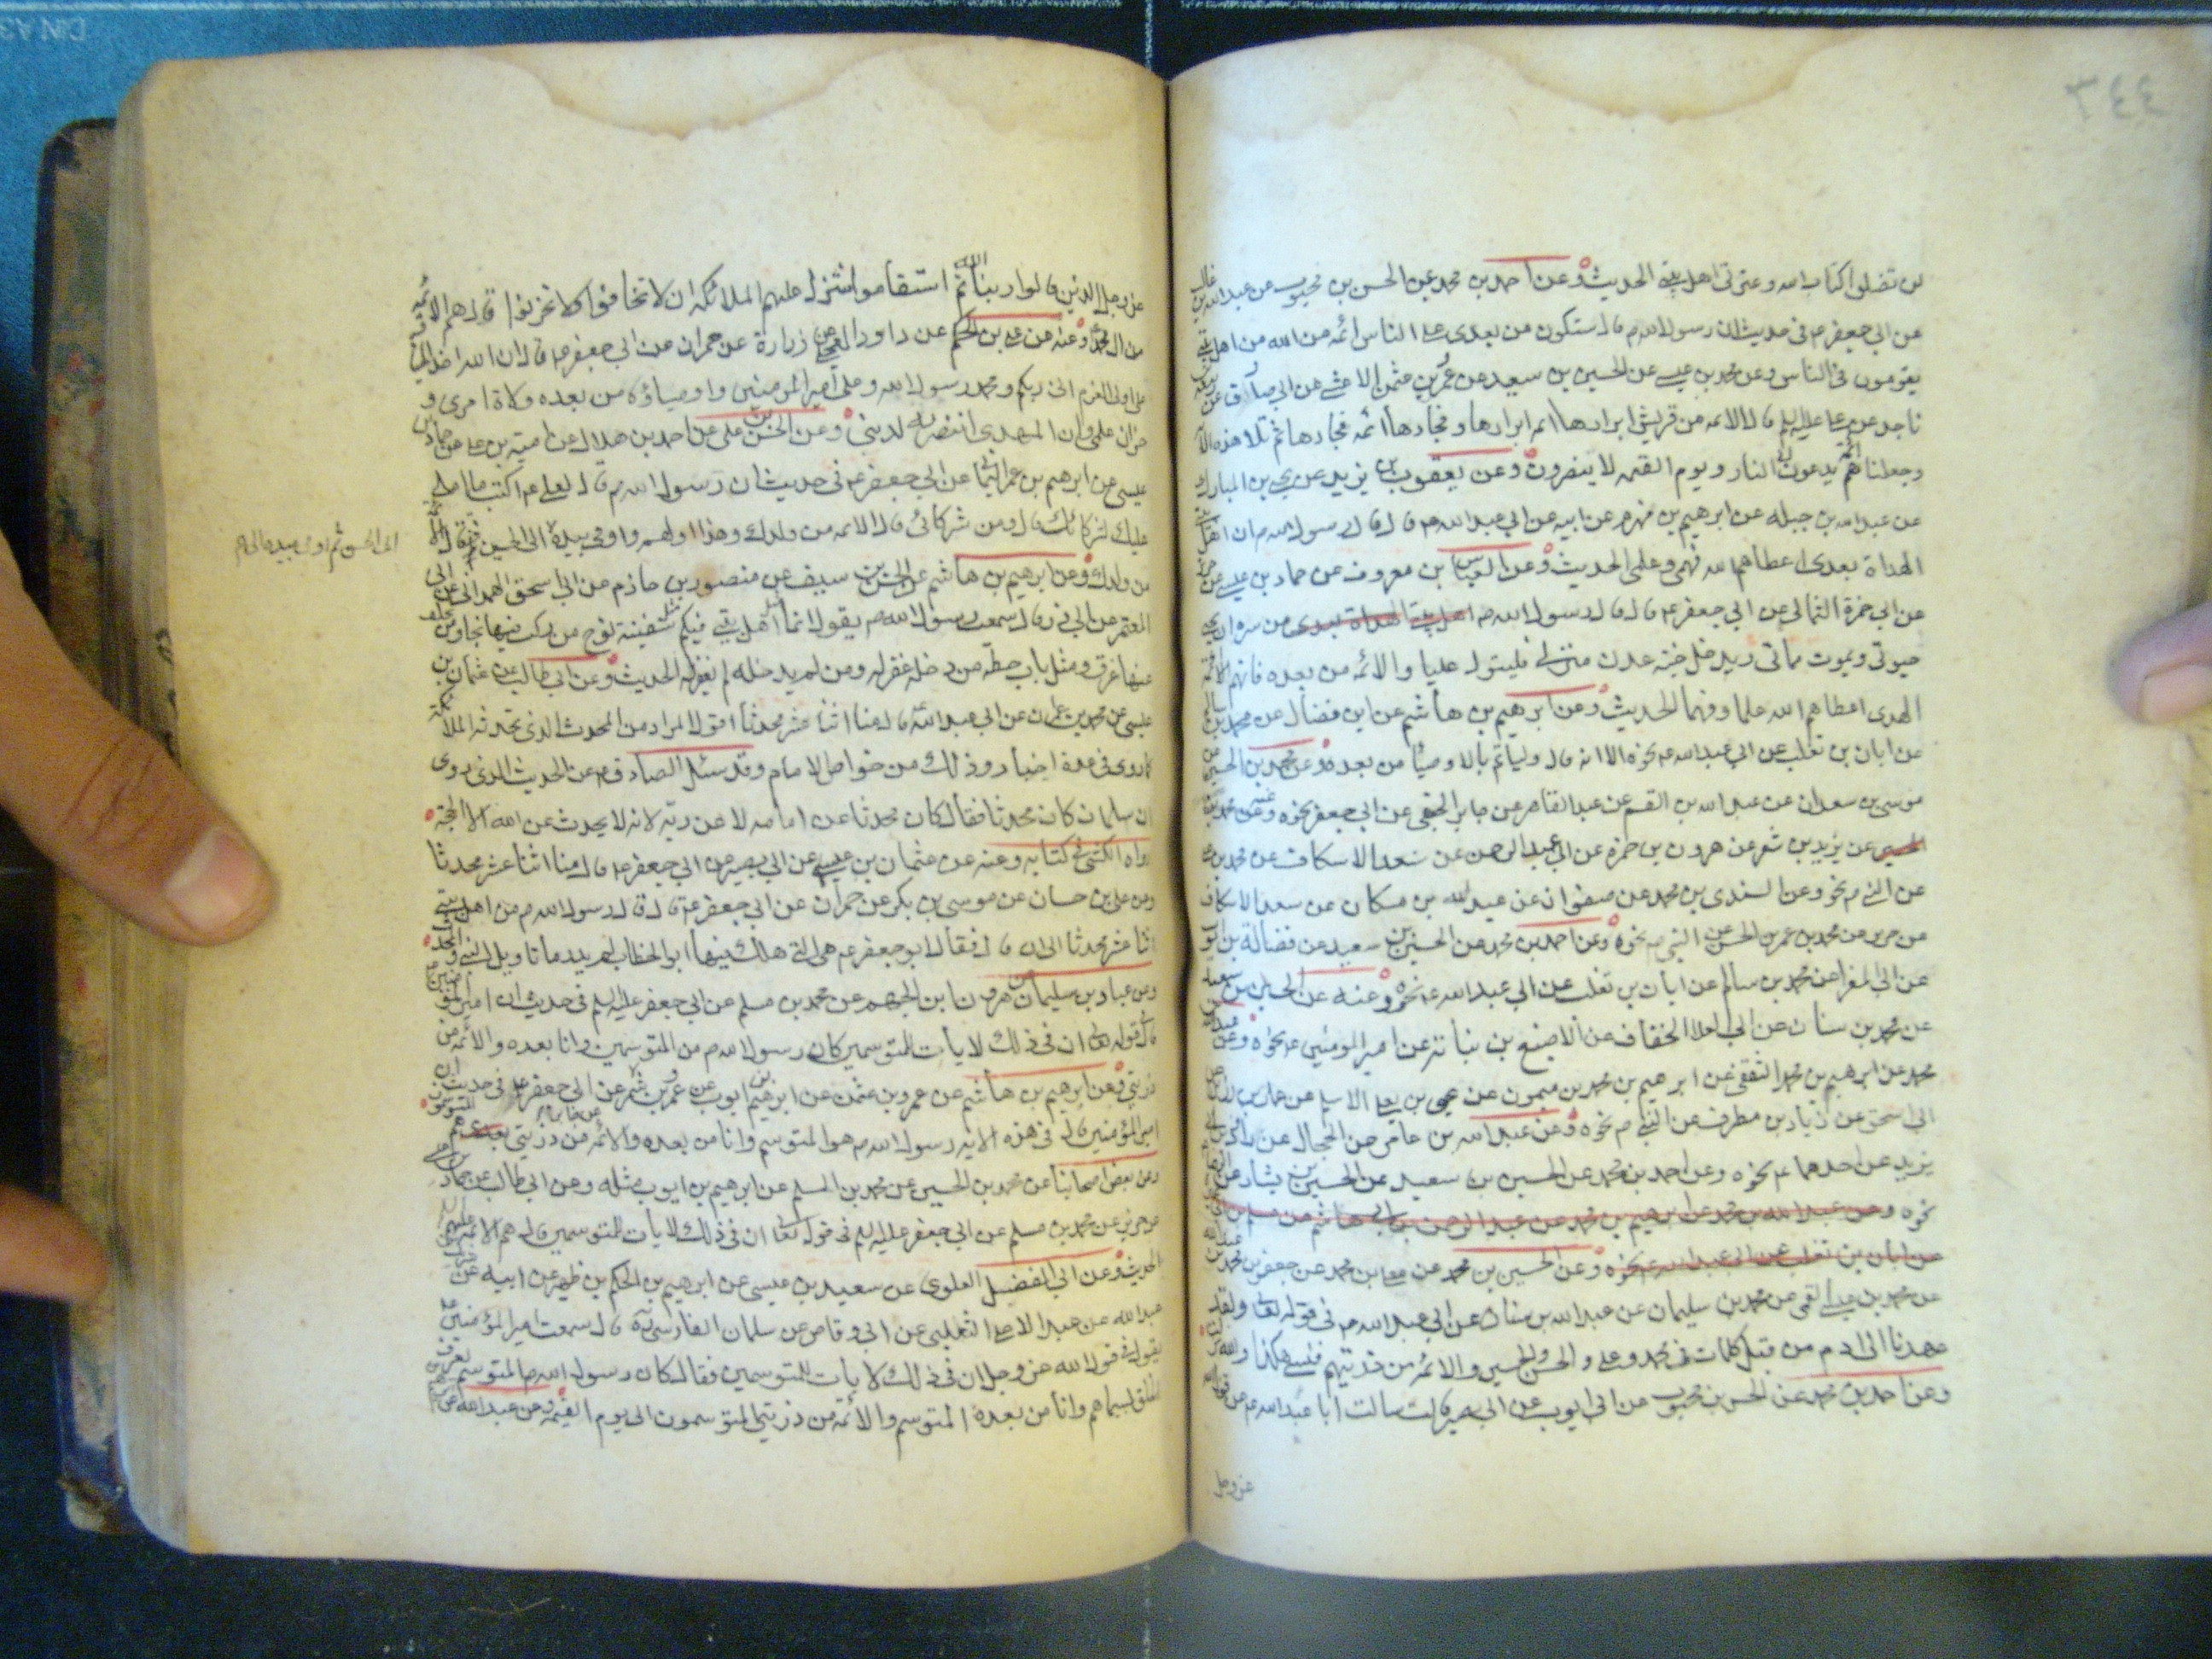 ٣٤٤
لن تضلوا كتاب الله وعترتي اهل بيتي الحديث وعن احمد بن محمد عن الحسن بن محبوب عن عبد الله بن غالب
عن ابي جعفر ع في حديث ان رسول الله ص قال ستكون من بعدي على الناس ائمة من الله من اهل بيتي
يقومون في الناس وعن محمد بن عيسى عن الحسين بن سعيد عن عمر بن عثمن الاعشى عن ابي صادق عن
ناجد عن علي عليه السلم قال الائمه من قريش ابرارها ائمه ابرارها وفجارها ائمه فجارها ثم تلا هذه الآية
وجعلناهم ائمة يدعون الى النار ويوم القيمه لا ينصرون وعن يعقوب بن يزيد عن يحيى بن المبارك
عن عبد الله بن جبله عن ابرهيم بن مهزم عن ابيه عن ابي عبد الله ع قال قال رسول الله ص ان اهل بيتي
الهداة بعدى اعطاهم الله فهمي وعلمى الحديث وعن العباس بن معروف عن حماد بن عيسى عن
عن ابي حمزة الثمالي عن ابي جعفر ع قال قال رسول الله ص اهل بيتي الهداة بعدى من سره ان يحيى
حيوتي ويموت مماتي ويدخل جنة عدن منزلي فليتول عليا والائمه من بعده فانهم ائمة
الهدى اعطاهم الله علما وفهما الحديث وعن ابرهيم بن هاشم عن ابن فضال عن محمد بن سالم
عن ابان بن تغلب عن ابي عبد الله ع نحوه الا انه قال وليأتم بالاوصياء من بعده وعن محمد بن الحسين عن
موسى بن سعدان عن عبد الله بن القسم عن عبد القاهر عن جابر الجعفى عن ابي جعفر نحوه وعن محمد بن
الحسين عن يزيد بن شعر عن هرون بن حمزة عن ابي عبد الرحمن عن سعد الاسكاف عن محمد بن علي
عن النبي ص نحوه وعن السندى بن محمد عن صفوان عن عبد الله بن مسكان عن سعد الاسكاف
عن حريز عن محمد بن عمر بن الحسن عن النبي ص نحوه وعن احمد بن محمد عن الحسين بن سعيد عن فضالة بن ايوب
عن ابي المغرا عن محمد بن سالم عن ابان بن تغلب عن ابي عبد الله ع نحوه وعنه عن الحسين بن سعيد
عن محمد بن سنان عن ابي العلا الخفاف عن الاصبغ بن نباته عن امير المومنين ع نحوه وعن عبد الله بن
محمد عن ابرهيم بن محمد الثقفى عن ابرهيم بن محمد بن ميمون عن يحيى بن يعلى الاسلمي عن عمار بن رزيق عن
ابي اسحق عن زياد بن مطرف عن النبي ص نحوه وعن عبد الله بن عامر عن الحجال عن داود بن ابي
يزيد عن احدهما ع نحوه وعن احمد بن محمد عن الحسين بن سعيد عن الحسين بن بشار عن
نحوه وعن عبد الله بن محمد عن ابرهيم بن محمد عن عبد الرحمن بن ابي هاشم عن
عن ابان بن تغلب عن ابي عبد الله ع نحوه وعن الحسين بن محمد عن معلى بن محمد عن جعفر بن محمد بن عبد الله
عن محمد بن عيسى القمى عن محمد بن سليمان عن عبد الله بن سنان عن ابي عبد الله ع في قوله تعالى ولقد
عهدنا الى ادم من قبل كلمات في محمد وعلى والحسن والحسين والائمه من ذريتهم فنسى هكذا والله نزلت
وعن احمد بن محمد عن الحسن بن محبوب عن ابي ايوب عن ابي بصير قال سالت ابا عبد الله ع عن قول الله
عز وجل
عز وجل الذين قالوا ربنا الله ثم استقاموا تتنزل عليهم الملائكه ان لا تخافوا ولا تحزنوا قال هم الائمه
من ال محمد وعنه عن على بن الحكم عن داود العجلى عن زرارة عن حمران عن ابي جعفر ع قال ان الله اخذ الميثاق
على اولى العزم انى ربكم ومحمد رسول الله وعلى امير المومنين واوصياؤه من بعده ولاة امرى و
خزان علمى وان المهدى انتصر به لدينى وعن الحسن بن على عن احمد بن هلال عن امية بن على عن حماد بن
عيسى عن ابرهيم بن عمر اليمانى عن ابي جعفر ع في حديث ان رسول الله ص قال لعلي ع اكتب ما املى
عليك لشركائك قال ومن شركائى قال الائمه من ولدك وهذا اولهم واومى بيده الى الحسين ثم قال الائمة
الى الحسن ثم اومى بيده الى
من ولدك وعن ابرهيم بن هاشم عن الحسن بن سيف عن منصور بن حازم عن ابي اسحق الهمدانى عن ابي
المعتمر عن ابي ذر قال سمعت رسول الله ص يقول انما مثل اهل بيتى فيكم مثل سفينة نوح من ركب فيها نجا ومن تخلف
عنها غرق ومثل باب حطة من دخله غفر له ومن لم يدخله لم يغفر له الحديث وعن ابي طالب عن عثمان بن
عيسى عن محمد بن عمران عن ابي عبد الله ع قال منا اثنا عشر محدثا اقول المراد من المحدث الذى تحدثه الملائكة
كما روى في عدة اخبار وذلك من خواص الامام وقد سئل الصادق ع عن الحديث الذى روى
ان سلمان كان محدثا فقال كان محدثا عن امامه لا عن ربه لانه لا يحدث عن الله الا الحجة
رواه الكشى في كتابه وعنه عن عثمان بن عيسى عن ابي بصير عن ابي جعفر ع قال منا اثنا عشر محدثا
وعن على بن حسان عن موسى بن بكر عن حمران عن ابي جعفر ع قال قال رسول الله ص من اهل بيتى
اثنا عشر محدثا الى ان قال فقال ابو جعفر ع هى التى هلك فيها ابو الخطاب لم يدر ما تاويل النبي والمحدث
وعن عباد بن سليمان عن هرون بن الجهم عن محمد بن مسلم عن ابي جعفر عليه السلم في حديث ان امير المومنين
قال قوله تعالى ان في ذلك لايات للمتوسمين كان رسول الله ص من المتوسمين وانا بعده والائمه من
ذريتى وعن ابرهيم بن هاشم عن عمرو بن عثمن عن ابرهيم بن ايوب عن عمرو بن شمر عن ابي جعفر ع في حديث ان
امير المؤمنين قال في هذه الاية رسول الله ص هو المتوسم وانا من بعده والائمه من ذريتى بعدى هم المتوسمون
وعن بعض اصحابنا عن محمد بن الحسين عن محمد بن المسلم عن ابرهيم بن ايوب مثله وعن ابي طالب عن حماد بن عيسى
عن حريز عن محمد بن مسلم عن ابي جعفر عليه السلم في قوله تعالى ان في ذلك لايات للمتوسمين قال هم الائمه عليهم السلم
الحديث وعن ابي الفضل العلوى عن سعيد بن عيسى عن ابرهيم بن الحكم بن ظهير عن ابيه عن
عبد الله عن عبد الاعلى التغلبى عن ابي وقاص عن سلمان الفارسى قال سمعت امير المؤمنين ع
يقول في قول الله عز وجل ان في ذلك لايات للمتوسمين فقال كان رسول الله ص المتوسم يعرف
الخلق بسيماهم وانا من بعده المتوسم والائمة من ذريتى المتوسمون الى يوم القيمه وعن عبد الله عن